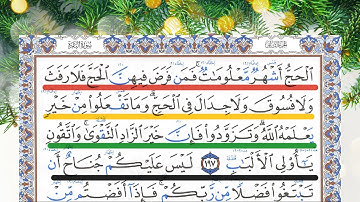 ٱلْحَجُّ أَشْهُرٌ مَّعْلُومَٰتٌ فَمَن فَرَضَ فِيهِنَّ ٱلْحَجَّ فَلَا رَفَثَ
وَلَا فُسُوقَ وَلَا جِدَالَ فِى ٱلْحَجِّ وَمَا تَفْعَلُوا۟ مِنْ خَيْرٍ
يَعْلَمْهُ ٱللَّهُ وَتَزَوَّدُوا۟ فَإِنَّ خَيْرَ ٱلزَّادِ ٱلتَّقْوَىٰ وَٱتَّقُونِ
يَٰٓأُو۟لِى ٱلْأَلْبَٰبِ ١٩٧ لَيْسَ عَلَيْكُمْ جُنَاحٌ أَن
تَبْتَغُوا۟ فَضْلًا مِّن رَّبِّكُمْ فَإِذَآ أَفَضْتُم مِّنْ